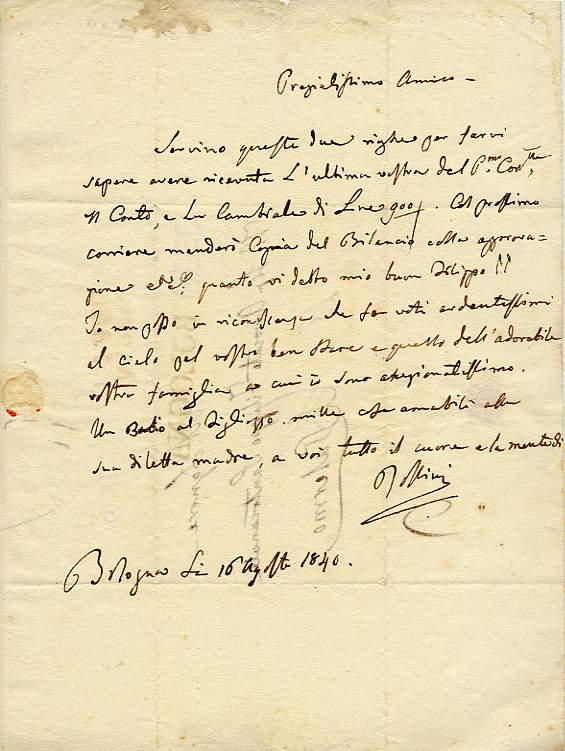 Pregiatissimo Amico –
Servino queste due righe per farvi
sapere avere ricevuta L'ultima vostra del P.mo Corr.te
Il Conto, e La Cambiale di Lire 900. Col prossimo
corriere manderò Copia del Bilancio colla approva=
zione quanto vi debbo mio buon Filippo!!
Io non posso in riconoscenza che far voti ardentissimi
al cielo pel vostro ben stare e quello dell'adorabile
vostra famiglia, a cui io sono affezionatissimo.
Un Bacio al Figlioccio, mille cose amabili alla
sua diletta madre, a voi tutto il cuore e la mente di
Rossini
Bologna Li 16 Agosto 1840.
3